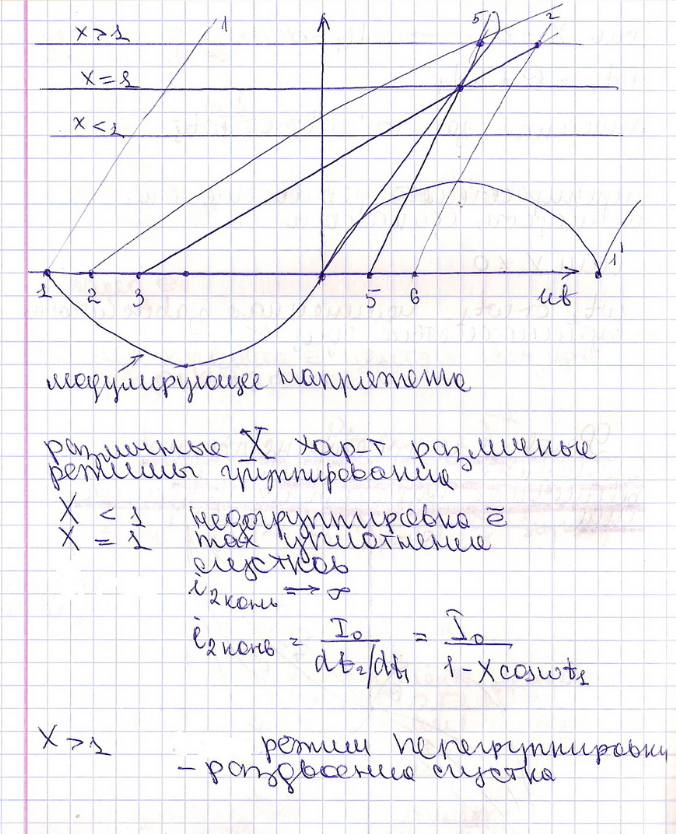 1 5 2
X > 1
X = 1
X < 1
1 2 3 5 6 ωt 1'
модулирующее напряжение
различные X хар-т различные
режимы группирования
X < 1 недогруппировка ē
X = 1 max уплотнение
сгустков
i₂конв ⇒ ∞
i₂конв = I₀ / dt₂/dt₁ = I₀ / 1 - X cosωt₁
X > 1 режим перегруппировки
- раздвоение сгустка